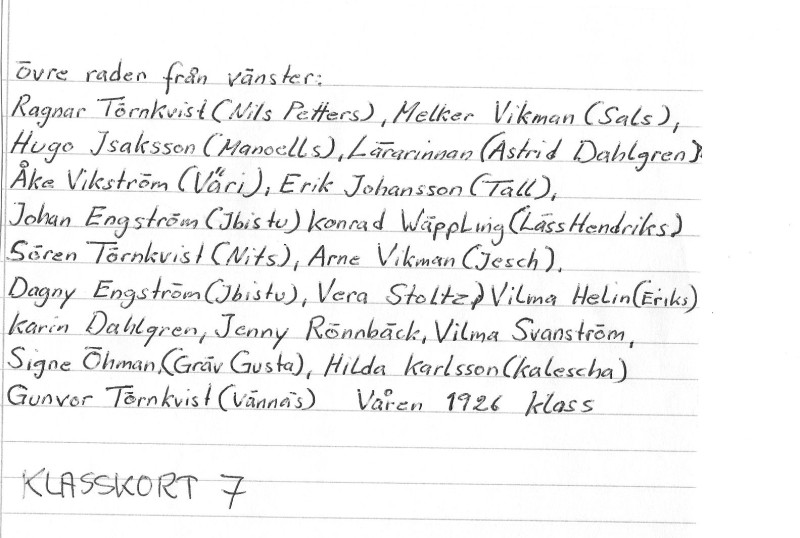 Övre raden från vänster:
Ragnar Törnkvist (Nils Petters), Melker Vikman (Sals),
Hugo Isaksson (Manoells), Lärarinnan (Astrid Dahlgren).
Åke Vikström (Våri), Erik Johansson (Tall),
Johan Engström (Ibistu) Konrad Wäppling (Läss Hendriks)
Sören Törnkvist (Nits), Arne Vikman (Jesch).
Dagny Engström (Ibistu), Vera Stoltz, Vilma Helin (Eriks)
Karin Dahlgren, Jenny Rönnbäck, Vilma Svanström,
Signe Öhman, (Gräv Gusta), Hilda Karlsson (Kalescha)
Gunvor Törnkvist (Vännäs) Våren 1926 klass
KLASSKORT 7